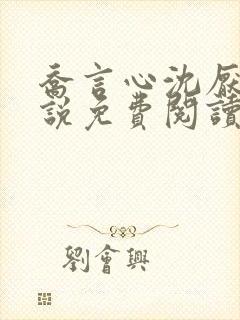 喬言心沈厭
說免費閱讀
劉會興